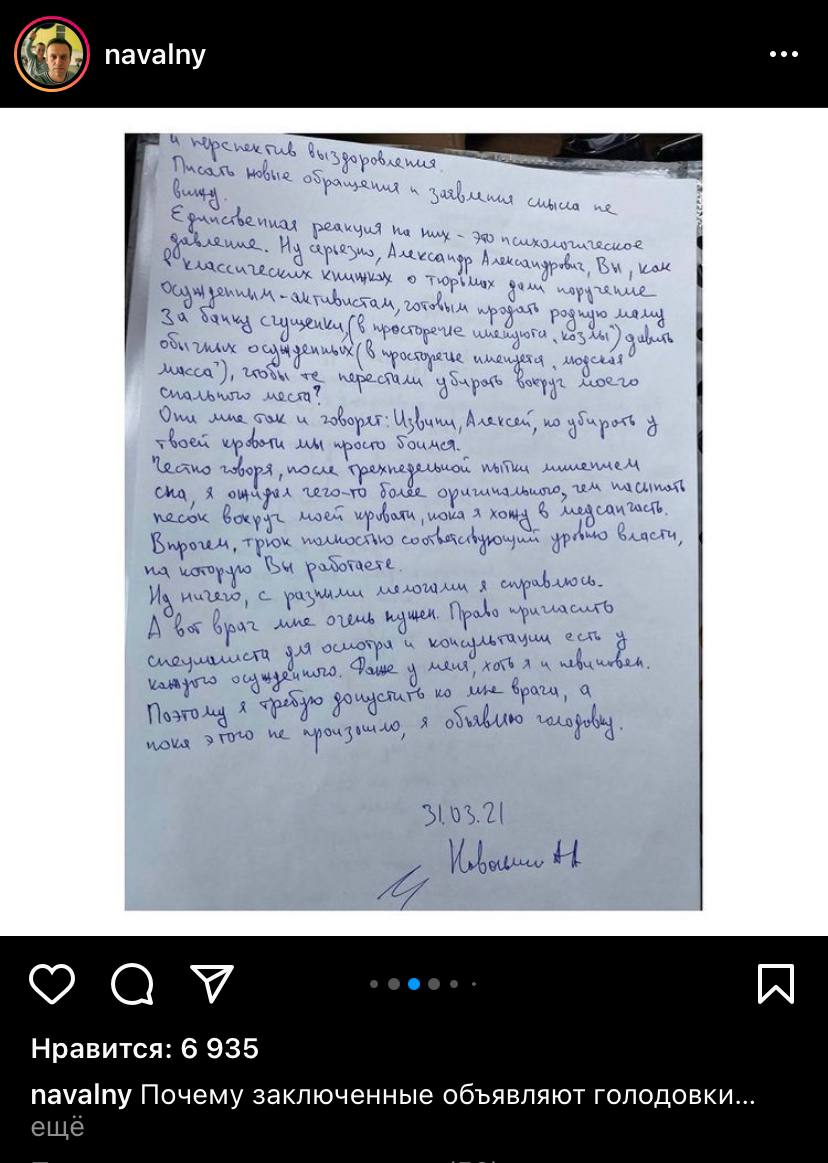 navalny
и перспектив выздоровления.
Писать новые обращения и заявления смысла не
вижу.
Единственная реакция на них - это психологическое
давление. Ну серьезно, Александр Александрович, Вы, как
в классических книжках о тюрьмах дали поручение
осужденным-активистам, готовым продать родную маму
за банку сгущенки, (в просторечие именуются „козлы") давить
обычных осужденных (в просторечие именуется „людская
масса"), чтобы те перестали убирать вокруг моего
спального места?
Они мне так и говорят: Извини, Алексей, но убирать у
твоей кровати мы просто боимся.
Честно говоря, после трехнедельной пытки лишением
сна, я ожидал чего-то более оригинального, чем насыпать
песок вокруг моей кровати, пока я хожу в медсанчасть.
Впрочем, трюк полностью соответствующий уровню власти,
на которую Вы работаете.
Ну ничего, с разными мелочами я справлюсь.
А вот врач мне очень нужен. Право пригласить
специалиста для осмотра и консультации есть у
каждого осужденного. Даже у меня, хоть я и невиновен.
Поэтому я требую допустить ко мне врача, а
пока этого не произошло, я объявляю голодовку.
31.03.21
Навальный АА
Нравится: 6 935
navalny Почему заключенные объявляют голодовки...
ещё